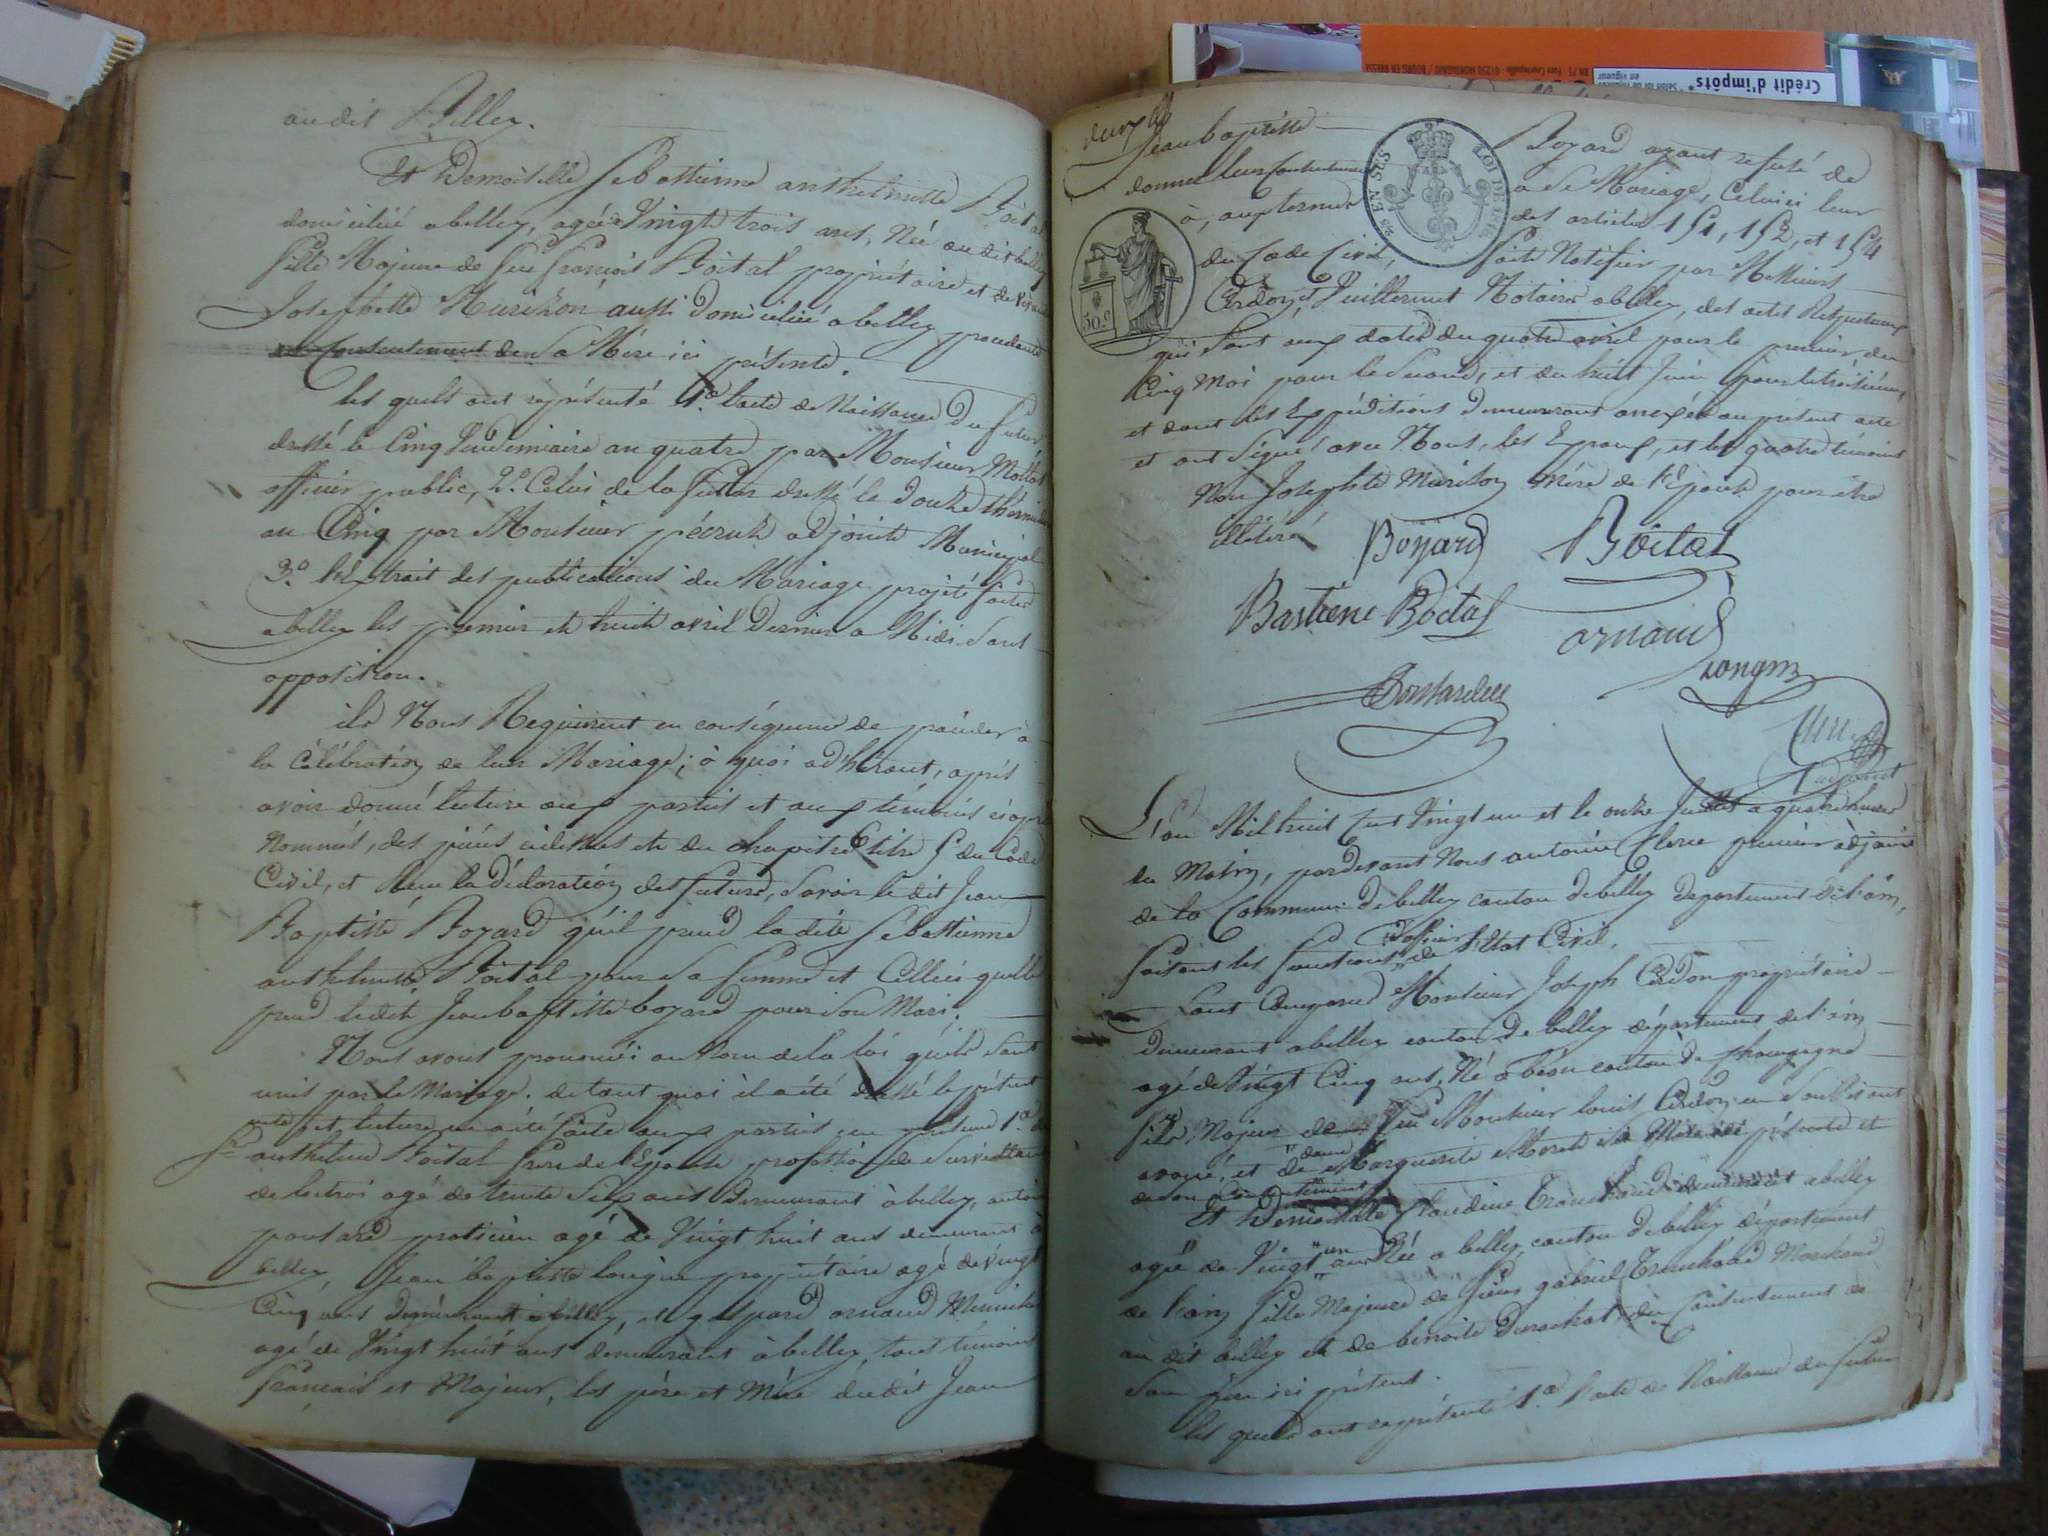 audit Belley.
Et Demoiselle Sebastienne anthelmette Boital
domiciliée a belley, agée Vingt trois ans, Née audit belley
fille Majeure de feu François Boital propriétaire et de
Josephette Marithon aussi domiciliée a belley procedante
consentement de Sa Mère ici présente.
les quels ont représenté 1.º l'acte de Naissance du futur
dressé le Cinq Vendemiaire an quatre par Monsieur Mollot
officier public, 2.º Celui de la future dressé le douze thermidor
an Cinq par Monsieur adjoint Municipal
3.º l'extrait des publications du Mariage projeté faites
a belley les premier et huit avril dernier a Midi Sans
opposition.
ils Nous Requierent en conséquence de proceder à
la Célébration de leur Mariage; à quoi adhérant, après
avoir donné lecture aux parties et aux témoins ci après
Nommés, des pièces cidessus et du chapitre 6 titre 5 du Code
Civil, et Reçu la Déclaration des futurs, Savoir le dit Jean
Baptiste Bozard qu'il prend la dite Sebastienne
anthelmette Boital pour Sa femme et Celleci quelle
prend ledit Jean baptiste bozard pour Son Mari.
Nous avons prononcé au Nom de la loi qu'ils Sont
unis par le Mariage. de tout quoi il a été dressé le présent
acte et lecture en a été faite aux parties en présence 1.º de
Sr anthelme Boital frère de l'Epouse profession de Surveillant
de loctroi agé de trente Six ans Demeurant à belley, antoine
pontard praticien agé de Vingt huit ans demeurant à
belley, Jean baptiste longin propriétaire agé de vingt
Cinq ans demeurant à belley, et gaspard arnaud Menuisier
agé de Vingt huit ans demeurant à belley, tous témoins
français et Majeurs, les père et Mère dudit Jean
Jean baptiste Bozard ayant refusé de
donner leur Consentement a Ce Mariage, Celuici leur
à, aux termes des articles 151, 152, et 154
du Code Civil, fait Notifier par Messieurs
Cerdon et Vuillermet Notaires a belley, des actes Respectueux
qui Sont aux dates du quatre avril pour le premier, du
Cinq Mai pour le Second, et du huit Juin pour le troisième,
et dont les Expéditions demeurent annexées au présent acte
et ont Signé avec Nous, les Epoux, et les quatre témoins
Non Josephte Marithon Mère de l'Epouse pour être
illétéré
EN SUS LOI DE 1816
50.c
Boyard Boital
Bastiene Boital arnaud
longin
L'an Mil huit Cent Vingt un et le onze Juillet a quatre heures
du Matin, pardevant Nous antoine Clerc premier adjoint
de la Commune de belley canton de belley departement de l'ain,
faisant les fonctions d'officier de l'Etat Civil.
Sont Comparus Monsieur Joseph Cerdon propriétaire
demeurant a belley canton de belley département de l'ain
agé de Vingt Cinq ans, Né a béon canton de
fils Majeur de feu Monsieur louis Cerdon en Son Vivant
avoué, et de dame Marguerite Sa Mère ici présente et
de Son Consentement
Et Demoiselle Claudine Tranchand demeurant a belley
agée de Vingt un ans Née a belley canton de belley département
de l'ain fille Majeure de Sieur gabriel Tranchand Marchand
au dit belley et de benoite du Consentement de
Son père ici présent.
les quels ont représenté 1.º l'acte de Naissance du futur
Crédit d'impôts*
*Selon loi de finances
en vigueur